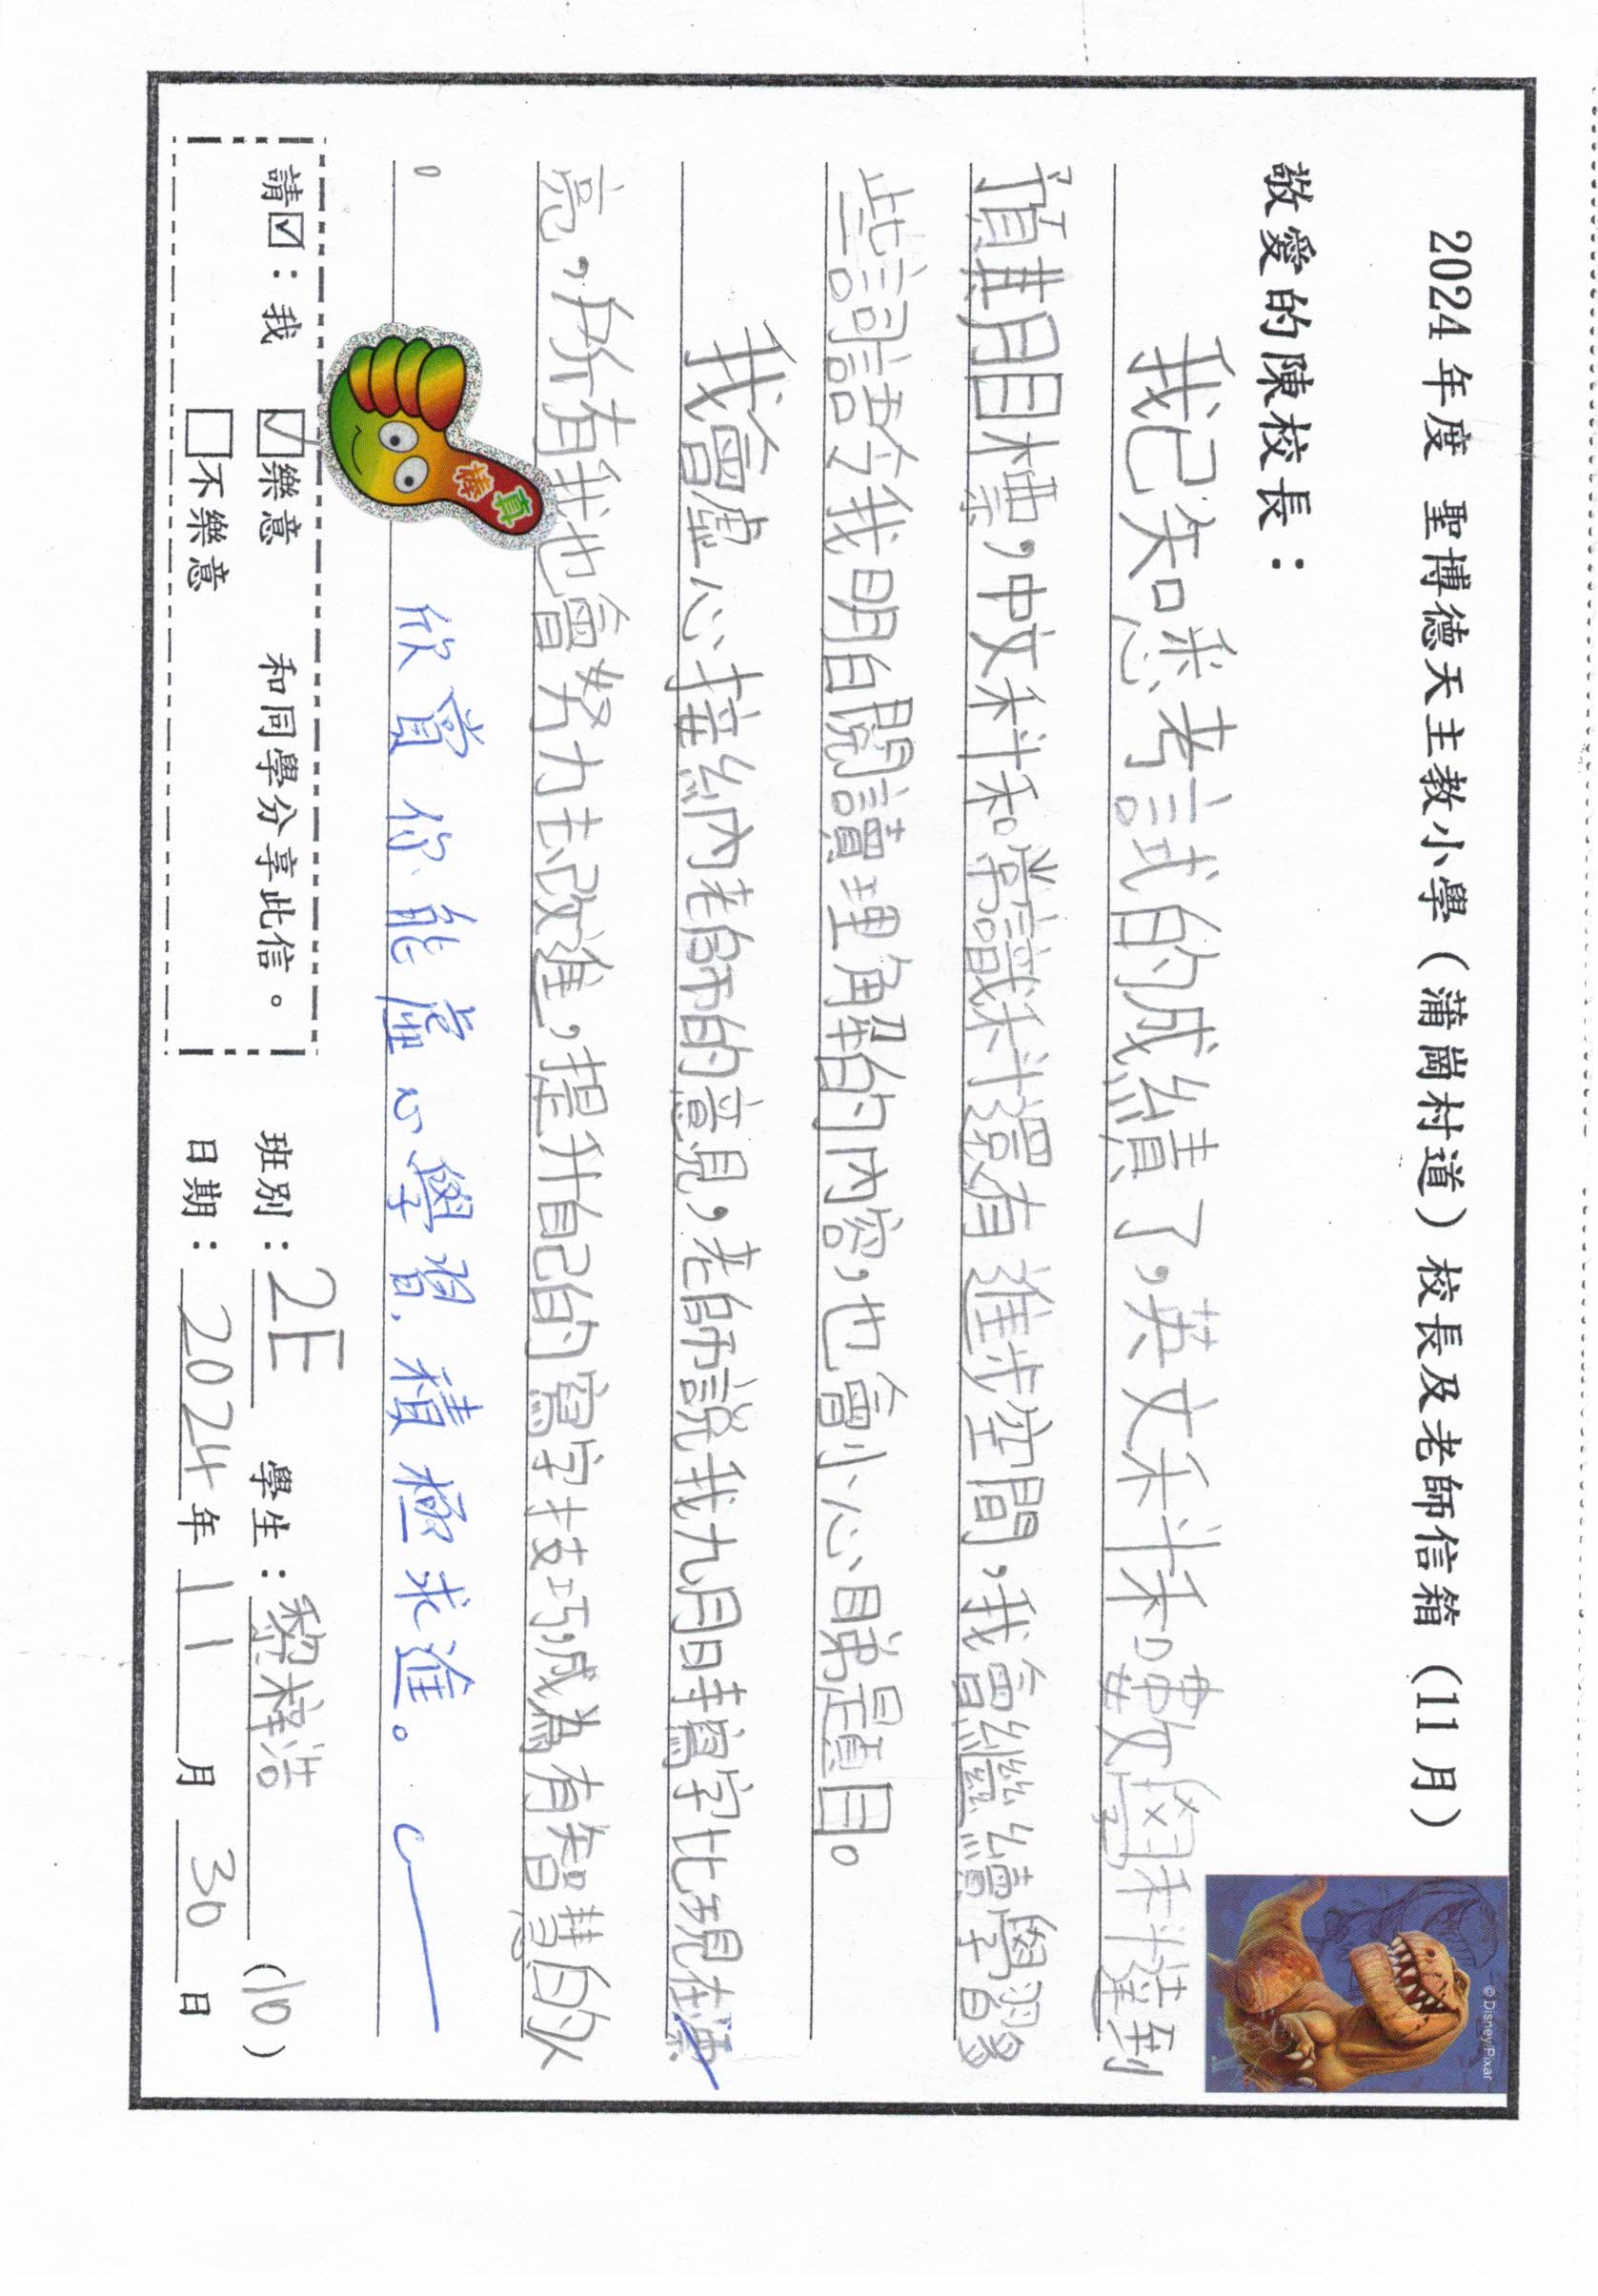 2024年度 聖博德天主教小學（蒲崗村道）校長及老師信箱（11月）
© Disney/Pixar
敬愛的陳校長：
我已知悉考試的成績了，英文科和數學科達到
預其月目標，中文科和常識科還有進步空間，我會繼續學習
些詞語令我明白閱讀理解的內容，也會小心睇題目。
我會虛心接納老師的意見，老師說我九月時寫字比現在漂
亮，所有我也會努力去改進，提升自己的寫字技巧，成為有智慧的人
。
真棒
欣賞你能虛心學習，積極求進。
請☑：我 ☑樂意 和同學分享此信。
□不樂意
班別：2E 學生：黎梓浩 (10)
日期：2024年11月30日